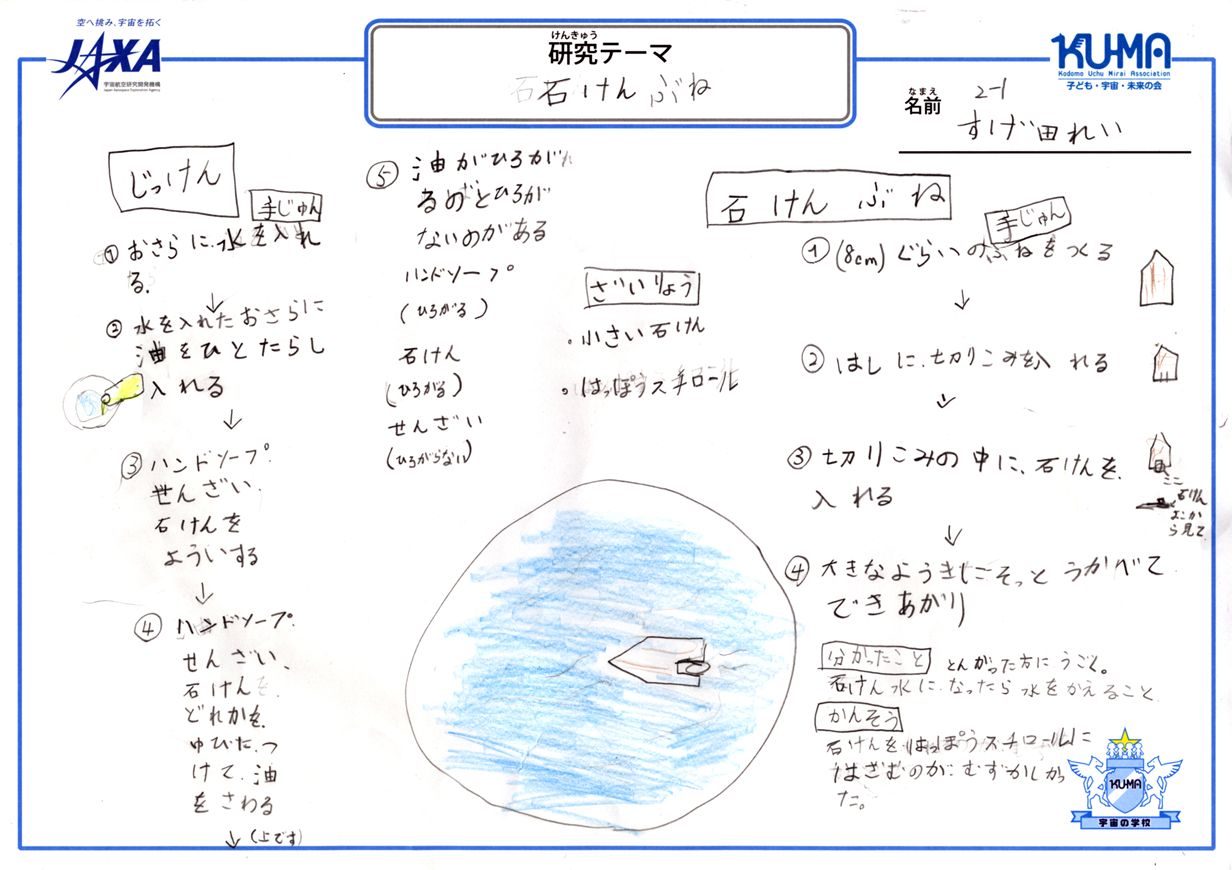 空へ挑み、宇宙を拓く
JAXA
宇宙航空研究開発機構
Japan Aerospace Exploration Agency
けんきゅう
研究テーマ
石石けんぶね
KU-MA
Kodomo Uchu Mirai Association
子ども・宇宙・未来の会
なまえ
名前
2-1
すげ田れい
じっけん
手じゅん
①おさらに水を入れ
る。
↓
②水を入れたおさらに
油をひとたらし
入れる
↓
③ハンドソープ.
せんざい.
石けんを
よういする
↓
④ハンドソープ.
せんざい、
石けんを.
どれかを
ゆびにつ
けて、油
をさわる
↓(上です)
⑤油がひろがれ
るのとひろが
ないのがある
ハンドソープ
(ひろがる)
石けん
(ひろがる)
せんざい
(ひろがらない)
ざいりょう
・小さい石けん
・はっぽうスチロール
石けんぶね
手じゅん
①(8cm)ぐらいのふねをつくる
↓
②はしに切りこみを入れる
↓
③切りこみの中に、石けんを
入れる
ここ
石けん
よこか
ら見て
↓
④大きなようきにそっとうかべて
できあがり
分かったこと
とんがった方にうごく。
石けん水になったら水をかえること
かんそう
石けんをはっぽうスチロールに
はさむのがむずかしかっ
た。
KU-MA
宇宙の学校